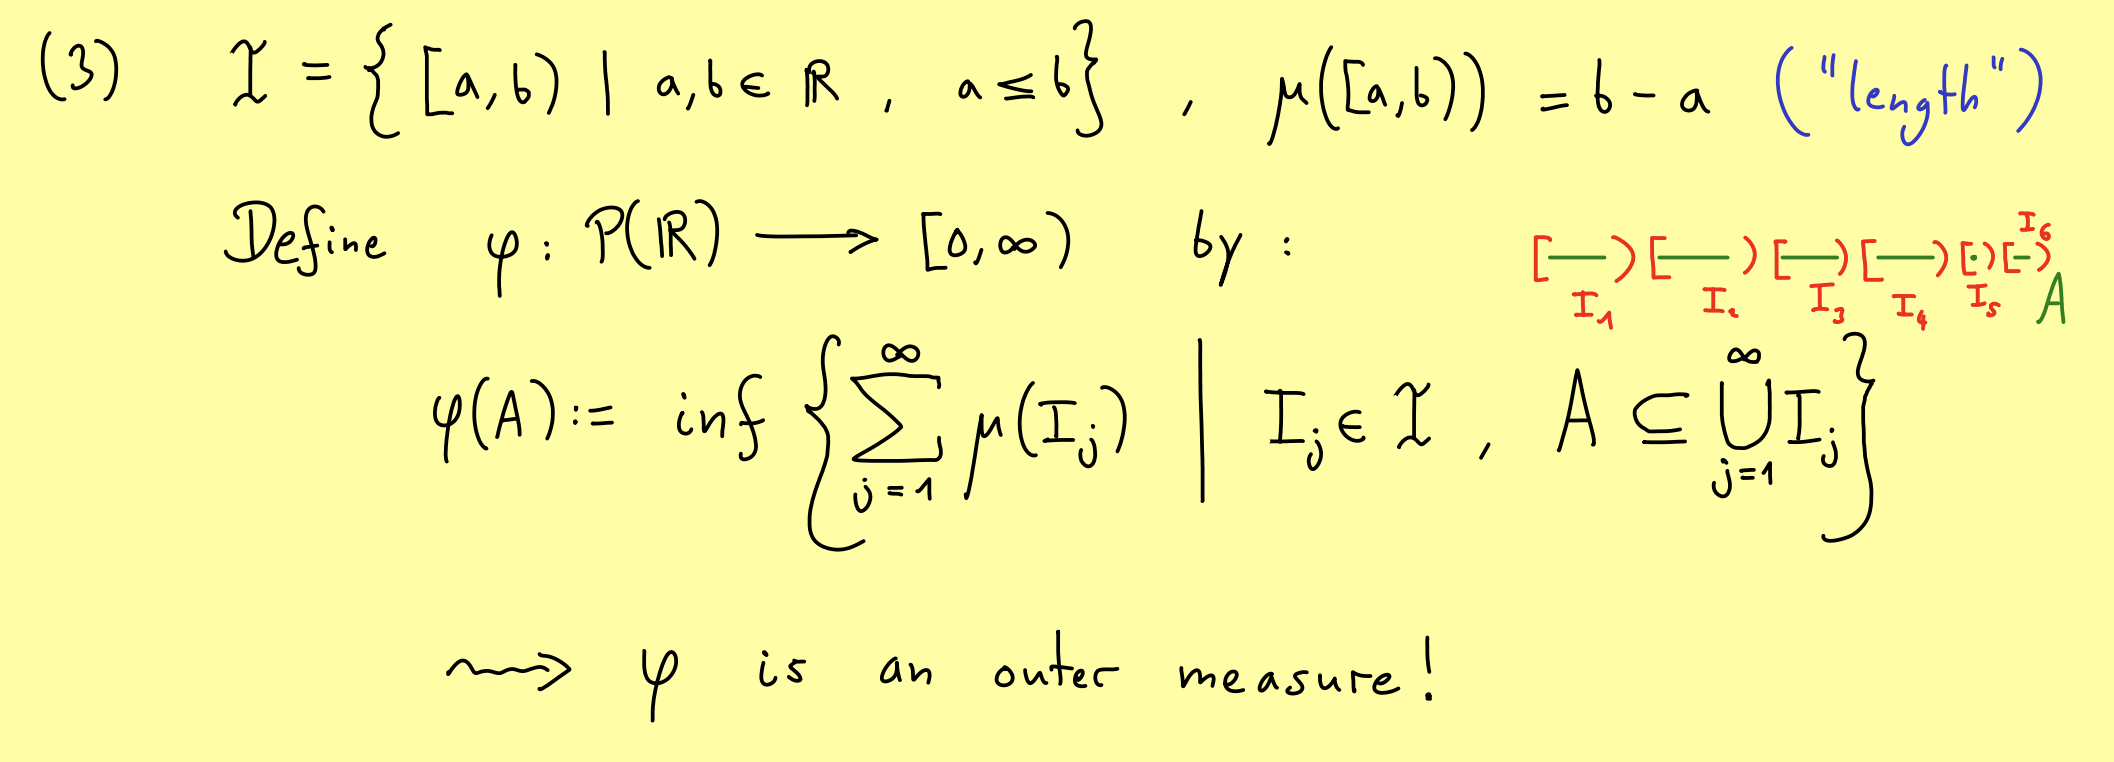 (3) ℐ = { [a,b) | a,b ∈ ℝ , a ≤ b } , μ([a,b)) = b - a ("length")
Define φ: P(ℝ) ⟶ [0,∞) by :
[—) [—) [—) [—) [·) [-)
I₁ I₂ I₃ I₄ I₅ I₆ A
φ(A) := inf { ∑_{j=1}^{∞} μ(I_j) | I_j ∈ ℐ , A ⊆ ⋃_{j=1}^{∞} I_j }
⇝ φ is an outer measure!